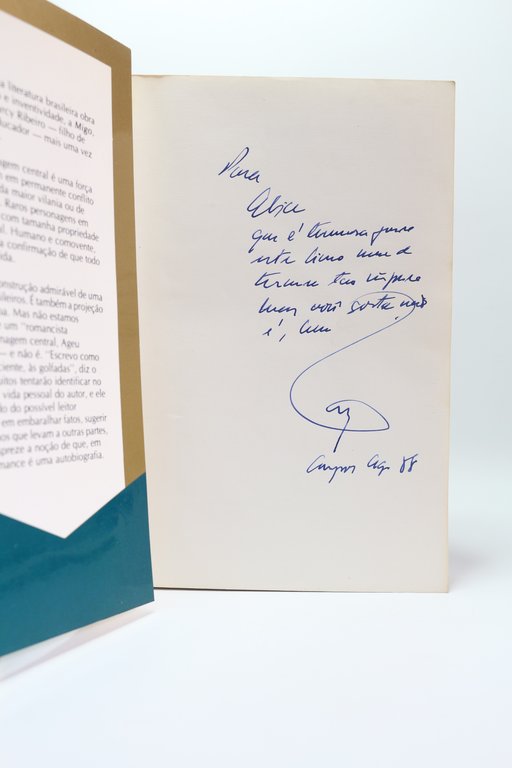 a literatura brasileira obra
e inventividade, a Migo,
rcy Ribeiro — filho de
ducador — mais uma vez
agem central é uma força
em permanente conflito
da maior vilania ou de
. Raros personagens em
com tamanha propriedade
al. Humano e comovente,
a confirmação de que todo
vida.
onstrução admirável de uma
sileiros. É também a projeção
ia. Mas não estamos
e um "romancista
nagem central, Ageu
— e não é. "Escrevo como
ciente, às golfadas", diz o
uitos tentarão identificar no
vida pessoal do autor, e ele
do do possível leitor
em embaralhar fatos, sugerir
nos que levam a outras partes,
spreze a noção de que, em
mance é uma autobiografia.
Para
Alice
que é
este livro
tão
você gosta
é,
88